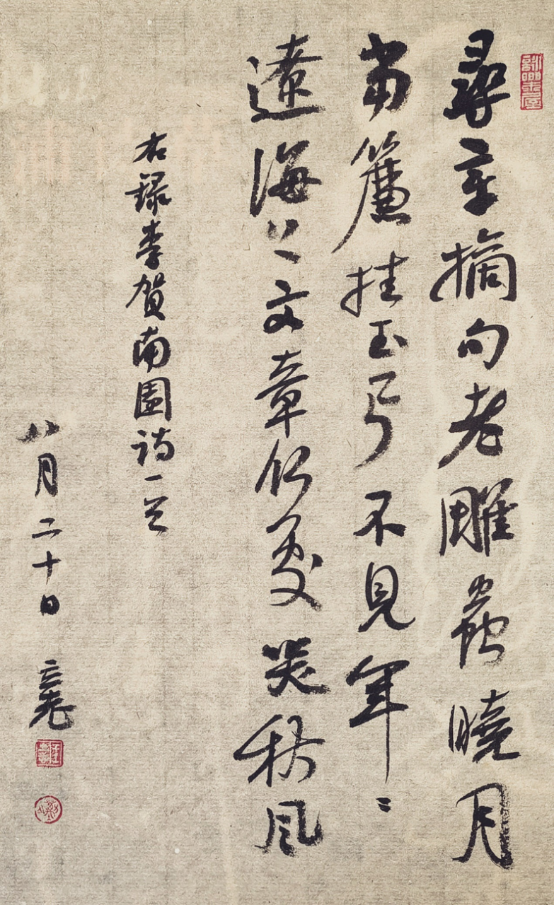 尋章摘句老雕蟲曉月
當簾挂玉弓不見年〻
遼海上文章何處哭秋風
右録李賀南園詩一首
八月二十日